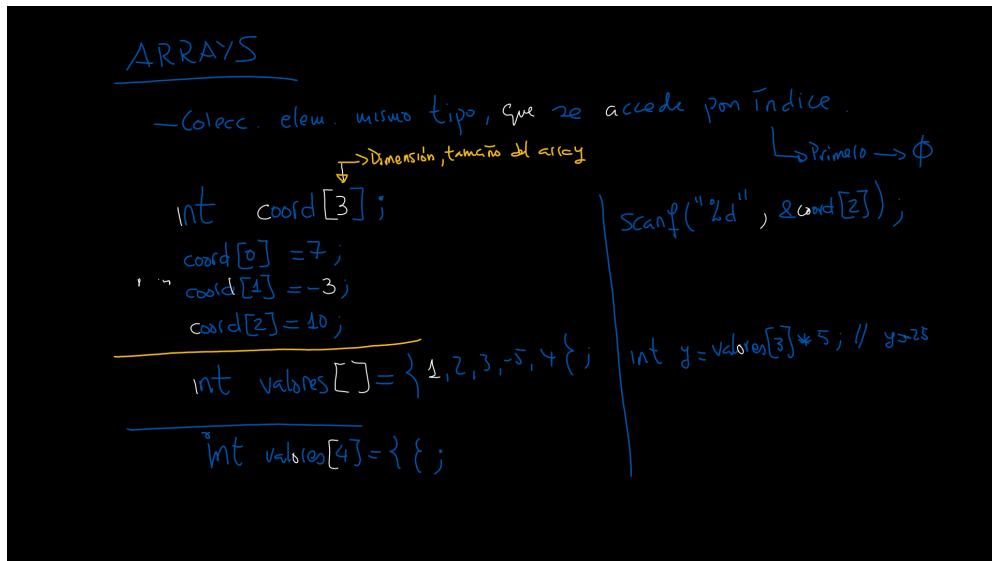 ARRAYS
— Colecc. elem. mismo tipo, que se accede por índice.
Primero → 0
→ Dimensión, tamaño del array
int coord[3];
coord[0] = 7;
coord[1] = -3;
coord[2] = 10;
int valores[] = {1, 2, 3, -5, 4};
int valores[4] = {};
scanf("%d", &coord[2]);
int y = valores[3] * 5; // y=-25